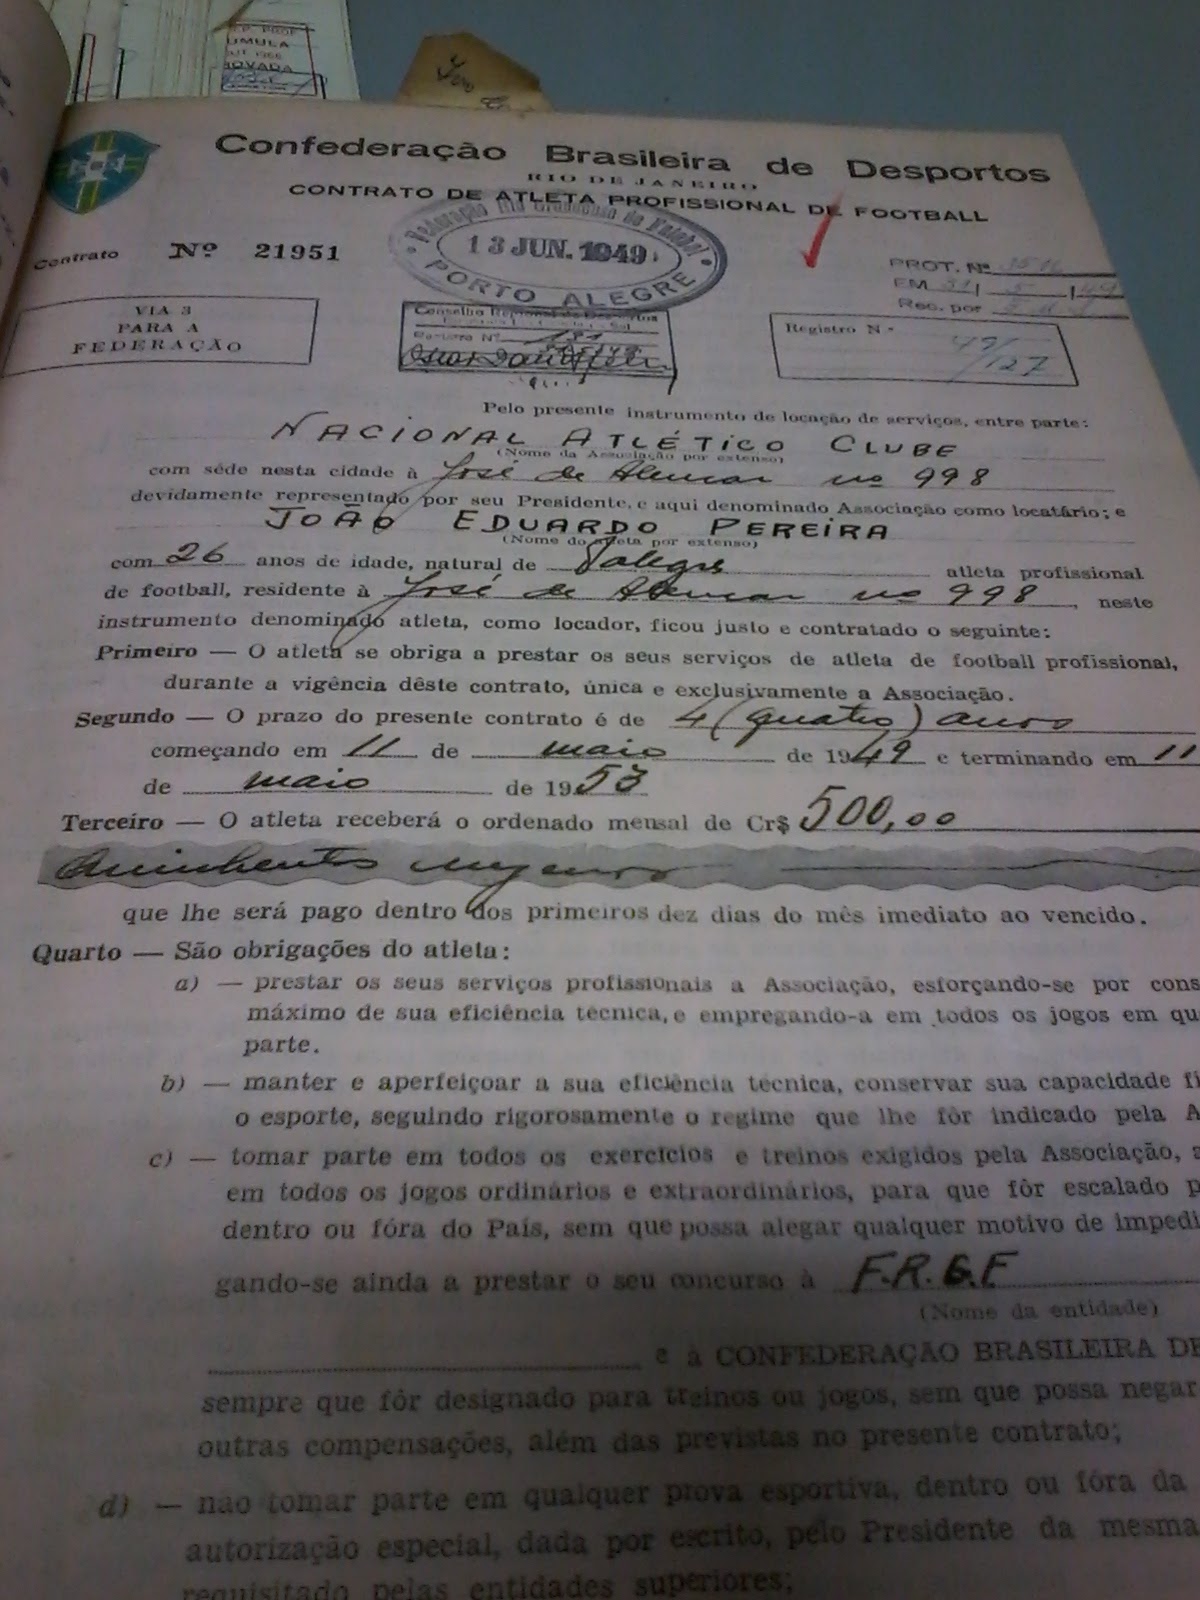 UMULA
OVADA
Confederação Brasileira de Desportos
RIO DE JANEIRO
CONTRATO DE ATLETA PROFISSIONAL DE FOOTBALL
Contrato Nº 21951
13 JUN. 1949
PORTO ALEGRE
PROT. Nº
EM 31 | 5 | 49
Rec. por
VIA 3
PARA A
FEDERAÇÃO
Registro N.
49/
/127
Pelo presente instrumento de locação de serviços, entre parte:
NACIONAL ATLÉTICO CLUBE
(Nome da Associação por extenso)
com séde nesta cidade à José de Alencar nº 998
devidamente representado por seu Presidente, e aqui denominado Associação como locatário; e
JOÃO EDUARDO PEREIRA
(Nome do atleta por extenso)
com 26 anos de idade, natural de P. alegre atleta profissional
de football, residente à José de Alencar nº 998, neste
instrumento denominado atleta, como locador, ficou justo e contratado o seguinte:
Primeiro — O atleta se obriga a prestar os seus serviços de atleta de football profissional,
durante a vigência dêste contrato, única e exclusivamente a Associação.
Segundo — O prazo do presente contrato é de 4 (quatro) anos
começando em 11 de maio de 1949 e terminando em 11
de maio de 1953
Terceiro — O atleta receberá o ordenado mensal de Cr$ 500,00
Quinhentos cruzeiros
que lhe será pago dentro dos primeiros dez dias do mês imediato ao vencido.
Quarto — São obrigações do atleta:
a) — prestar os seus serviços profissionais a Associação, esforçando-se por cons
máximo de sua eficiência técnica, e empregando-a em todos os jogos em qu
parte.
b) — manter e aperfeiçoar a sua eficiência técnica, conservar sua capacidade fi
o esporte, seguindo rigorosamente o regime que lhe fôr indicado pela A
c) — tomar parte em todos os exercícios e treinos exigidos pela Associação, a
em todos os jogos ordinários e extraordinários, para que fôr escalado p
dentro ou fóra do País, sem que possa alegar qualquer motivo de impedi
gando-se ainda a prestar o seu concurso à F.R.G.F
(Nome da entidade)
e à CONFEDERAÇÃO BRASILEIRA DE
sempre que fôr designado para treinos ou jogos, sem que possa negar
outras compensações, além das previstas no presente contrato;
d) — nao tomar parte em qualquer prova esportiva, dentro ou fóra da
autorização especial, dada por escrito, pelo Presidente da mesma
requisitado pelas entidades superiores;